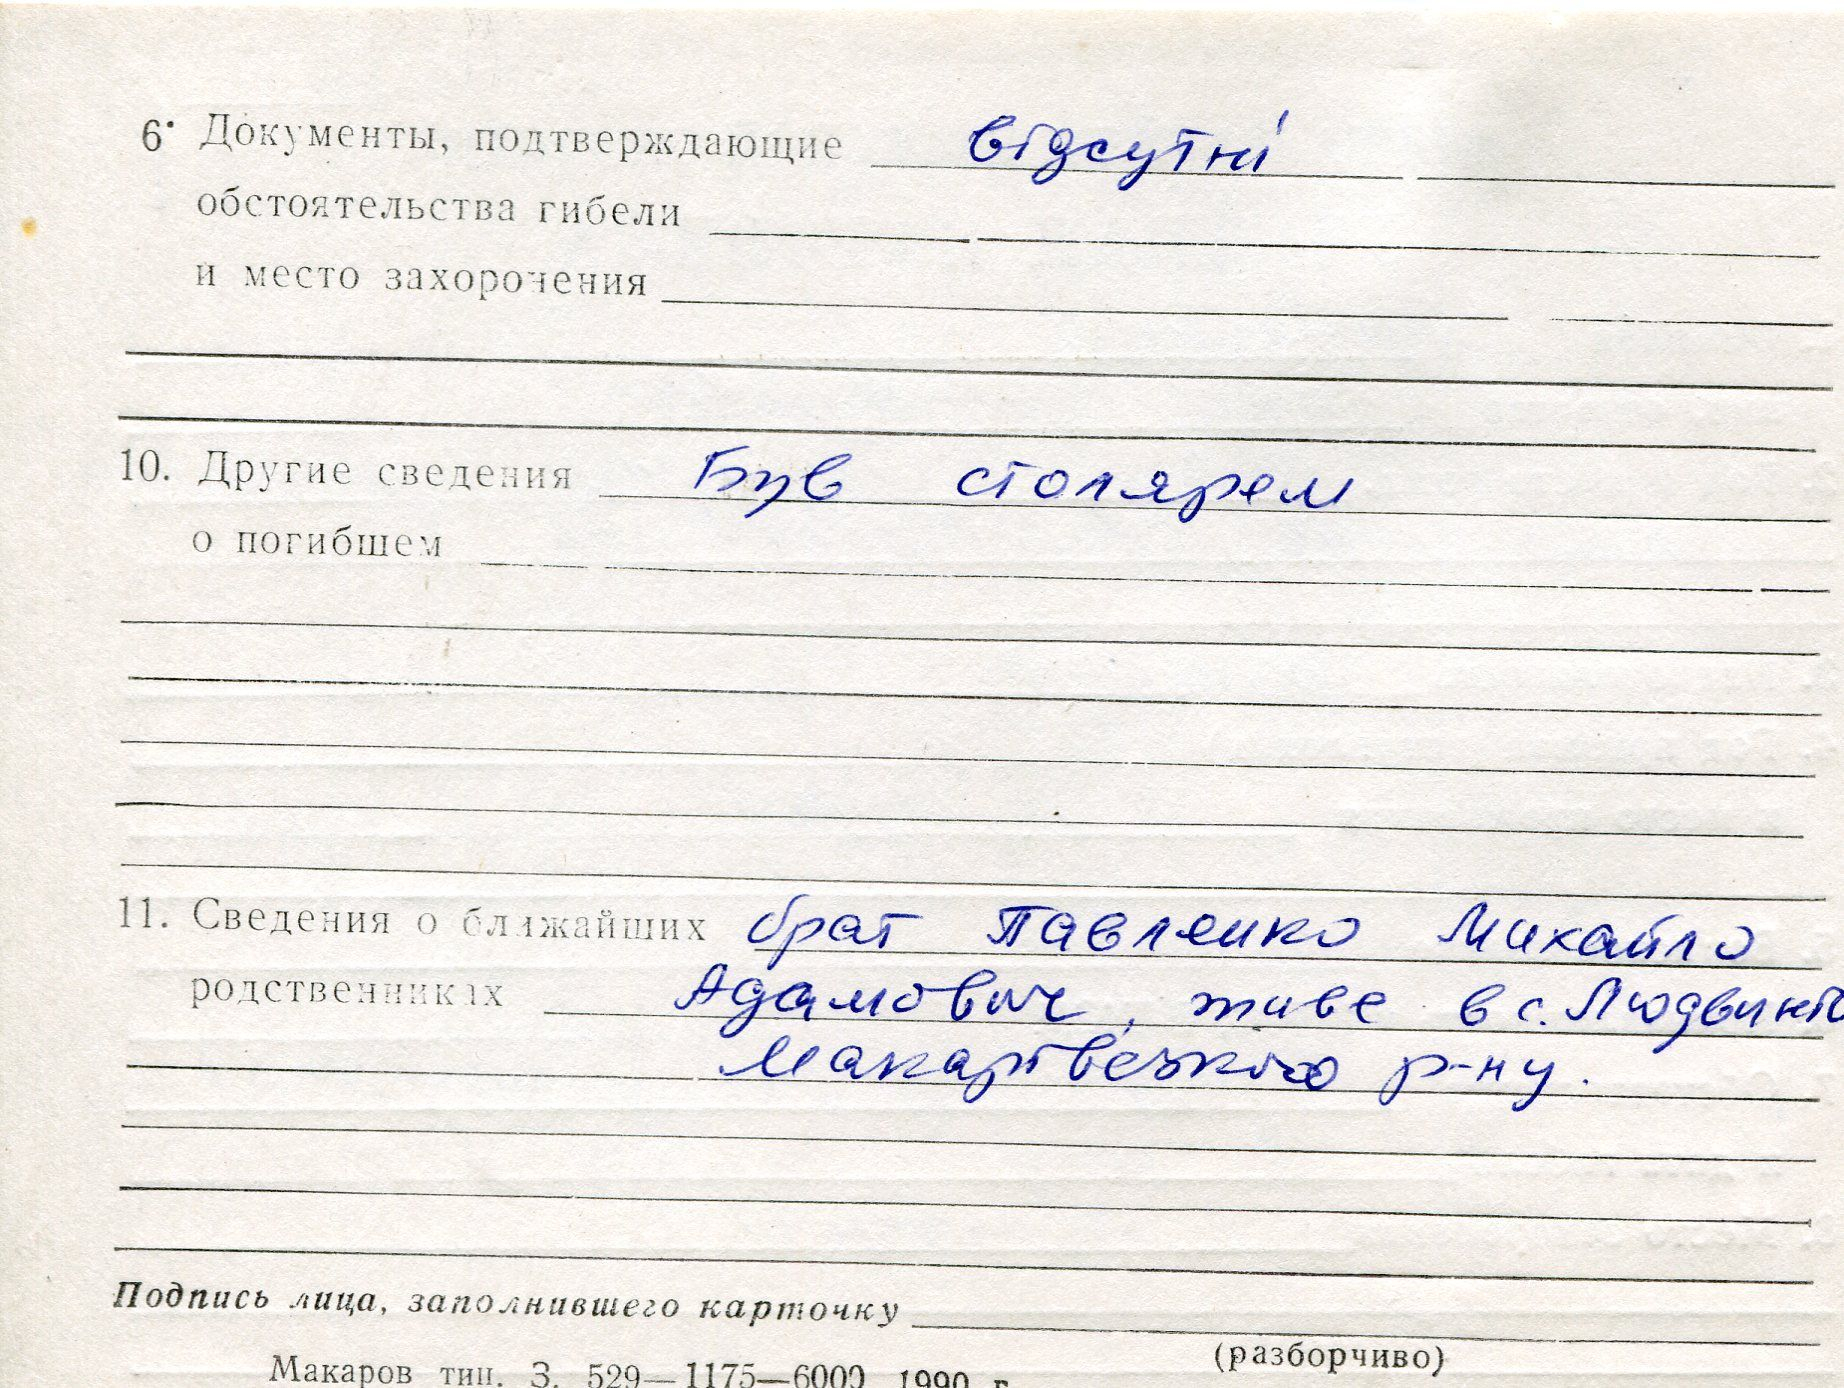 6. Документы, подтверждающие відсутні
обстоятельства гибели
и место захоронения
10. Другие сведения Був столярем
о погибшем
11. Сведения о ближайших брат Павленко Михайло
родственниках Адамович, живе в с. Людвин
Макарівського р-ну.
Подпись лица, заполнившего карточку
(разборчиво)
Макаров тип. З. 529—1175—6000 1990 г.